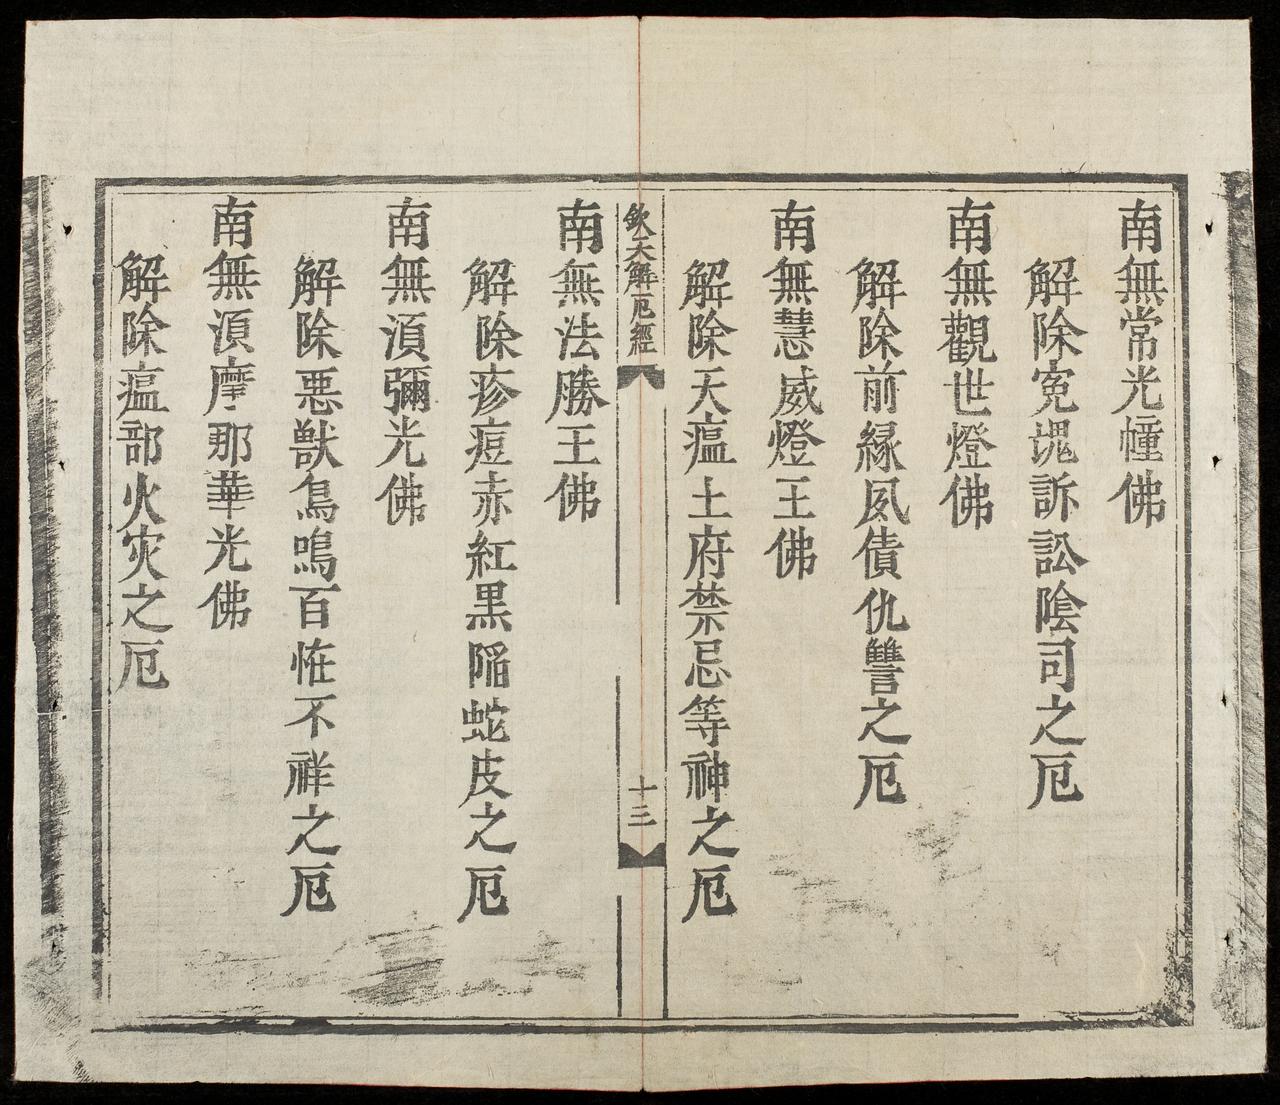 南無常光幢佛
解除寃愧訴訟陰司之厄
南無觀世燈佛
解除前縁夙債仇讐之厄
南無慧威燈王佛
解除天瘟土府禁忌等神之厄
欽天解厄經
十三
南無法勝王佛
解除疹痘赤紅黒陷蛇皮之厄
南無湏彌光佛
解除惡獸鳥鳴百恠不祥之厄
南無湏摩那華光佛
解除瘟部火灾之厄